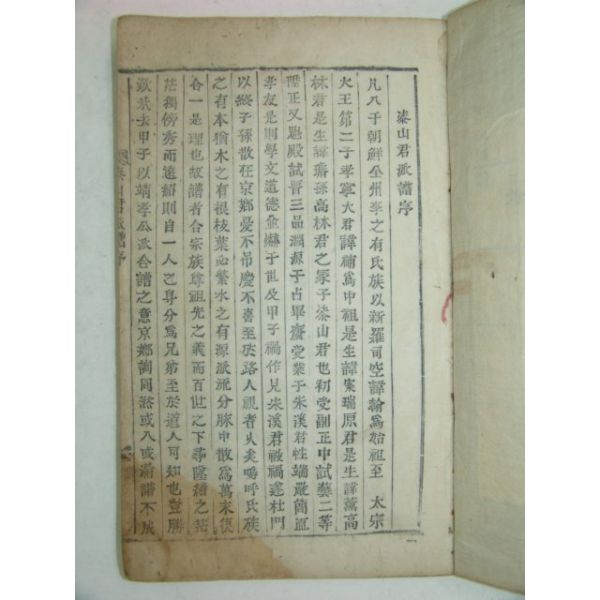 漆山君派譜序
凡入于朝鮮全州李之有氏族以新羅司空諱翰爲始祖至 太宗
大王第二子孝寧大君諱補爲中祖是生諱寀瑞原君是生諱薰高
林君是生諱 孫高林君之冢子漆山君也初受副正中試藝二等
陞正又魁殿試晋三品淵源于占畢齋受業于朱溪君性端嚴簡
孝友是則學文道德並 于世及甲子禍作見朱溪君被禍遂杜門
以終子孫散在京鄉憂不吊慶不喜至於路人視者久矣嗚呼氏族
之有本猶木之有根枝葉必繁水之有源派流分脉中散爲萬末復
合一是理也故譜者合宗族尊祖先之義而百世之下尋墜緖之茫
茫獨傍秀而遠紹則自一人之身分爲兄弟至於道人可知也豈勝
歎哉去甲子以靖孝公派合譜之意京鄉詢同然或入或漏譜不成